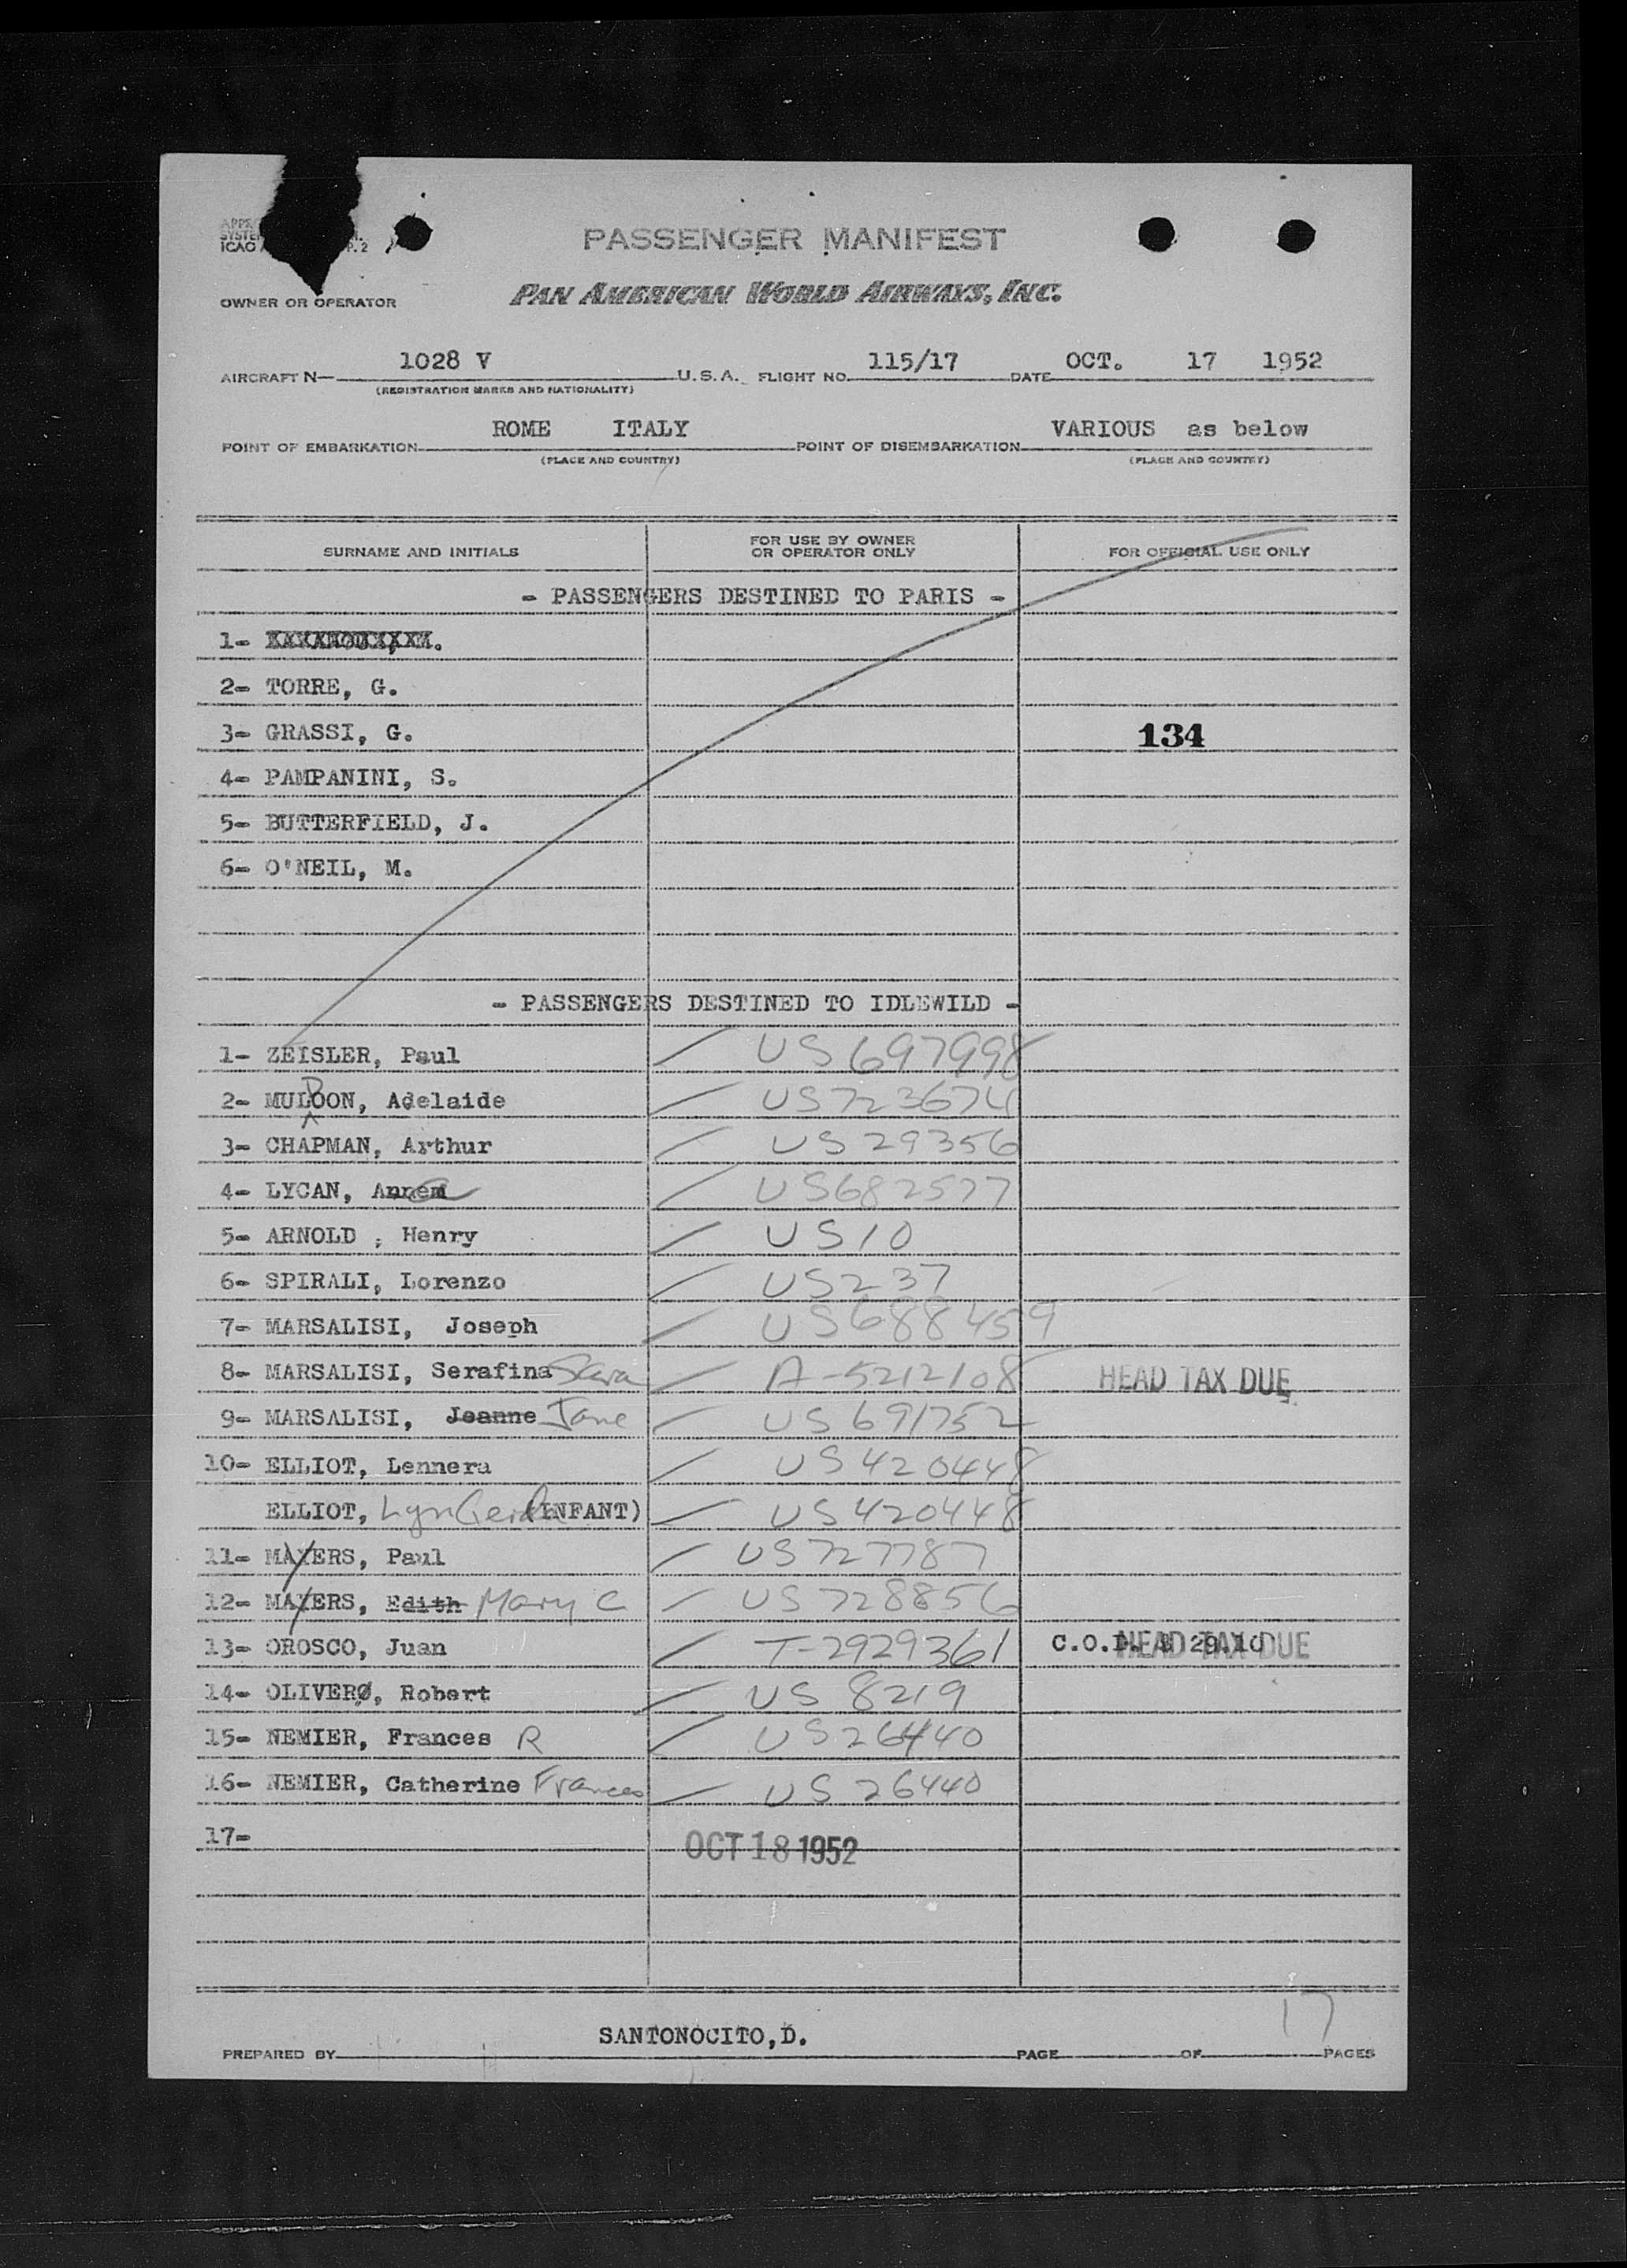 PASSENGER MANIFEST
ICAO P. 2
OWNER OR OPERATOR PAN AMERICAN WORLD AIRWAYS, INC.
AIRCRAFT N— 1028 V U.S.A. FLIGHT NO. 115/17 DATE OCT. 17 1952
(REGISTRATION MARKS AND NATIONALITY)
POINT OF EMBARKATION ROME ITALY POINT OF DISEMBARKATION VARIOUS as below
(PLACE AND COUNTRY) (PLACE AND COUNTRY)
SURNAME AND INITIALS FOR USE BY OWNER OR OPERATOR ONLY FOR OFFICIAL USE ONLY
- PASSENGERS DESTINED TO PARIS -
1-
2- TORRE, G.
3- GRASSI, G. 134
4- PAMPANINI, S.
5- BUTTERFIELD, J.
6- O'NEIL, M.
- PASSENGERS DESTINED TO IDLEWILD -
1- ZEISLER, Paul US 697998
2- MULDOON, Adelaide US 723674
3- CHAPMAN, Arthur US 29356
4- LYCAN, US 682577
5- ARNOLD , Henry US 10
6- SPIRALI, Lorenzo US 237
7- MARSALISI, Joseph US 688459
8- MARSALISI, Serafina Sara A-5212108 HEAD TAX DUE
9- MARSALISI, Jeanne Jane US 691752
10- ELLIOT, Lennera US 420448
ELLIOT, (INFANT) US 420448
11- MAYERS, Paul US 727787
12- MAYERS, Edith Mary C US 728856
13- OROSCO, Juan T-2929361 C.O.I. HEAD TAX DUE
14- OLIVERO, Robert US 8219
15- NEMIER, Frances R US 26440
16- NEMIER, Catherine Frances US 26440
17- OCT 18 1952
17
SANTONOCITO,D.
PREPARED BY PAGE OF PAGES